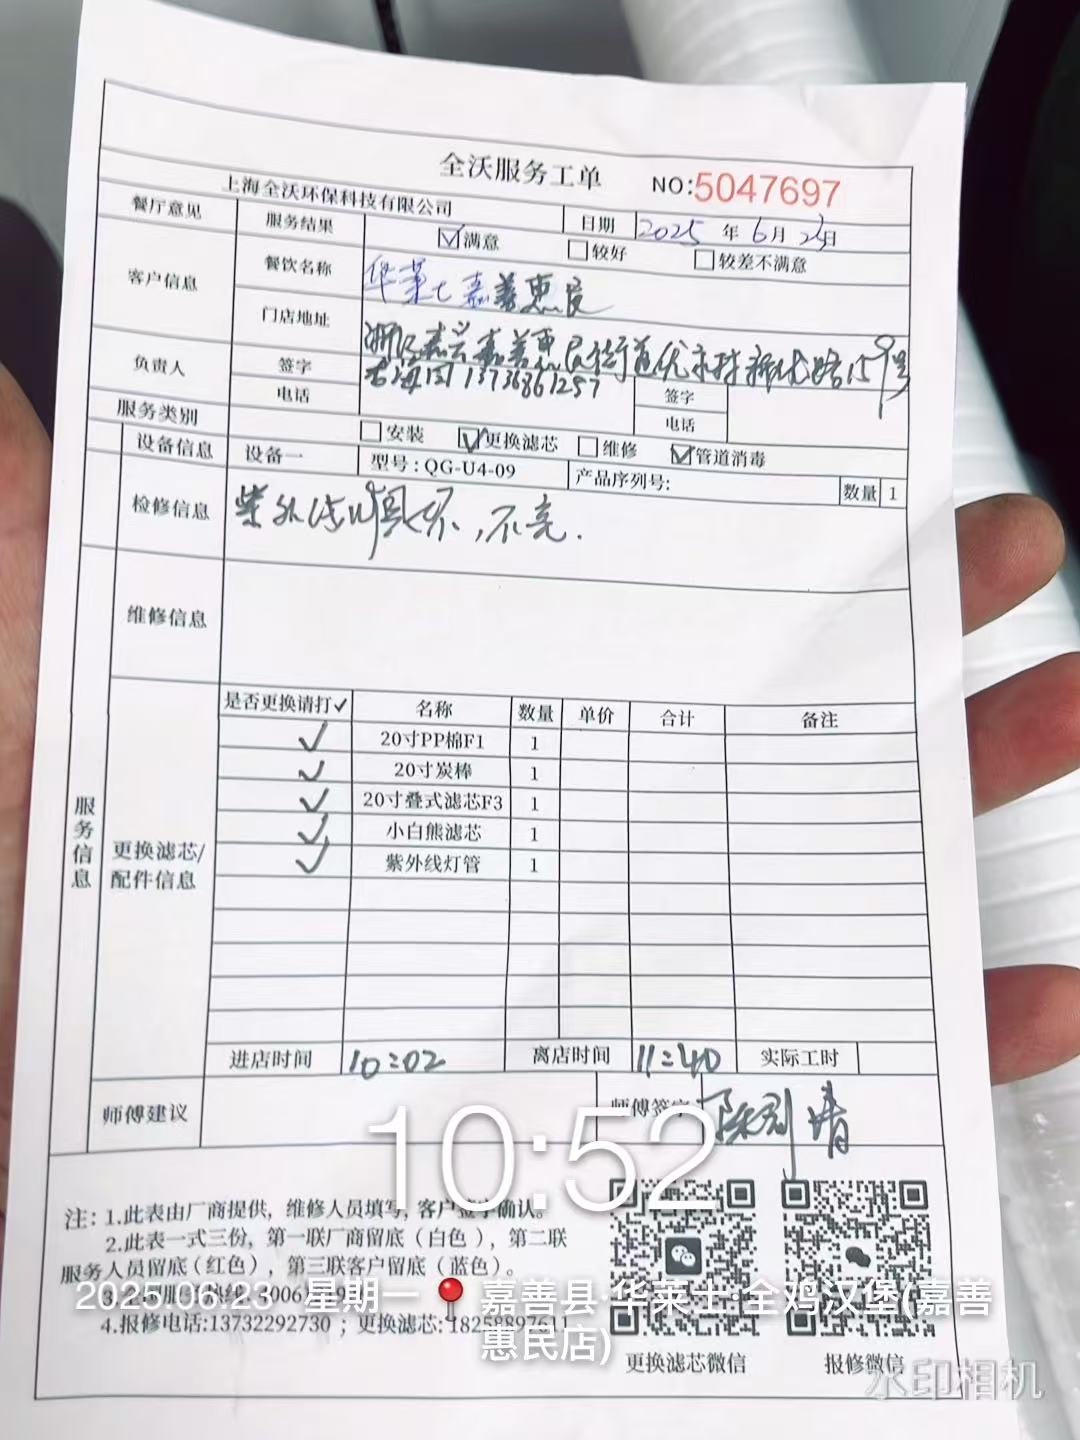 全沃服务工单
NO:5047697
上海全沃环保科技有限公司
日期 2025 年 6 月 23日
餐厅意见 服务结果 ☑满意 □较好 □较差不满意
客户信息 餐饮名称 华莱士嘉善惠民
门店地址 浙江嘉兴嘉善惠民街道优家村 路159号
负责人 签字 海 签字
电话 13736861257 电话
服务类别 □安装 ☑更换滤芯 □维修 ☑管道消毒
设备信息 设备一 型号:QG-U4-09 产品序列号: 数量 1
检修信息 紫外线灯损坏,不亮.
维修信息
服务信息
更换滤芯/
配件信息
是否更换请打✓ 名称 数量 单价 合计 备注
✓ 20寸PP棉F1 1
✓ 20寸炭棒 1
✓ 20寸叠式滤芯F3 1
✓ 小白熊滤芯 1
✓ 紫外线灯管 1
进店时间 10:02 离店时间 11:40 实际工时
师傅建议 师傅签字 陈 清
10:52
注: 1.此表由厂商提供，维修人员填写，客户签字确认。
2.此表一式三份，第一联厂商留底（白色），第二联
服务人员留底（红色），第三联客户留底（蓝色）。
2025.06.23 星期一 嘉善县·华莱士·全鸡汉堡(嘉善
惠民店)
4.报修电话:13732292730 ；更换滤芯:18258897611
更换滤芯微信 报修微信
水印相机